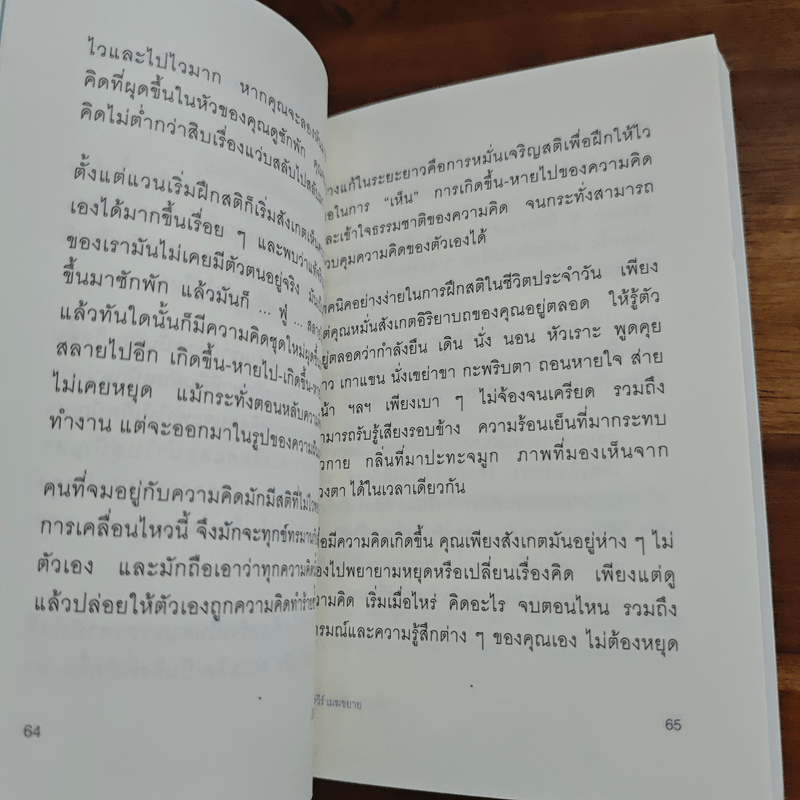 ไวและไปไวมาก หากคุณจะลอง
คิดที่ผุดขึ้นในหัวของคุณดูซักพัก
คิดไม่ต่ำกว่าสิบเรื่องแว่บสลับไปสลับ
ตั้งแต่แวนเริ่มฝึกสติก็เริ่มสังเกต
เองได้มากขึ้นเรื่อย ๆ และพบว่า
ของเรามันไม่เคยมีตัวตนอยู่จริง
ขึ้นมาซักพัก แล้วมันก็ ... ฟู่ ...
แล้วทันใดนั้นก็มีความคิดชุดใหม่
สลายไปอีก เกิดขึ้น-หายไป-เกิดขึ้น-
ไม่เคยหยุด แม้กระทั่งตอนหลับ
ทำงาน แต่จะออกมาในรูปของความ
คนที่จมอยู่กับความคิดมักมีสติที่ไม่
การเคลื่อนไหวนี้ จึงมักจะทุกข์ทรมาน
ตัวเอง และมักถือเอาว่าทุกความคิด
แล้วปล่อยให้ตัวเองถูกความคิดทำร้าย
64
างแก้ในระยะยาวคือการหมั่นเจริญสติเพื่อฝึกให้ไว
อในการ “เห็น” การเกิดขึ้น-หายไปของความคิด
ละเข้าใจธรรมชาติของความคิด จนกระทั่งสามารถ
วบคุมความคิดของตัวเองได้
ทคนิคอย่างง่ายในการฝึกสติในชีวิตประจำวัน เพียง
ต่คุณหมั่นสังเกตอิริยาบถของคุณอยู่ตลอด ให้รู้ตัว
ยู่ตลอดว่ากำลังยืน เดิน นั่ง นอน หัวเราะ พูดคุย
าว เกาแขน นั่งเขย่าขา กะพริบตา ถอนหายใจ ส่าย
น้า ฯลฯ เพียงเบา ๆ ไม่จ้องจนเครียด รวมถึง
ามารถรับรู้เสียงรอบข้าง ความร้อนเย็นที่มากระทบ
วกาย กลิ่นที่มาปะทะจมูก ภาพที่มองเห็นจาก
วงตา ได้ในเวลาเดียวกัน
อมีความคิดเกิดขึ้น คุณเพียงสังเกตมันอยู่ห่าง ๆ ไม่
องไปพยายามหยุดหรือเปลี่ยนเรื่องคิด เพียงแต่ดู
วามคิด เริ่มเมื่อไหร่ คิดอะไร จบตอนไหน รวมถึง
ารมณ์และความรู้สึกต่าง ๆ ของคุณเอง ไม่ต้องหยุด
วีร์ เมฆขยาย
65